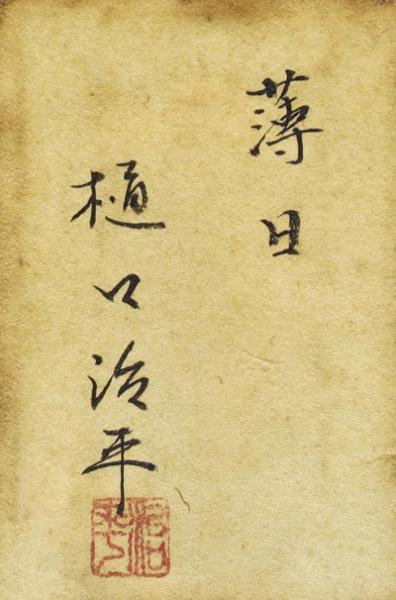 薄日
樋口治平